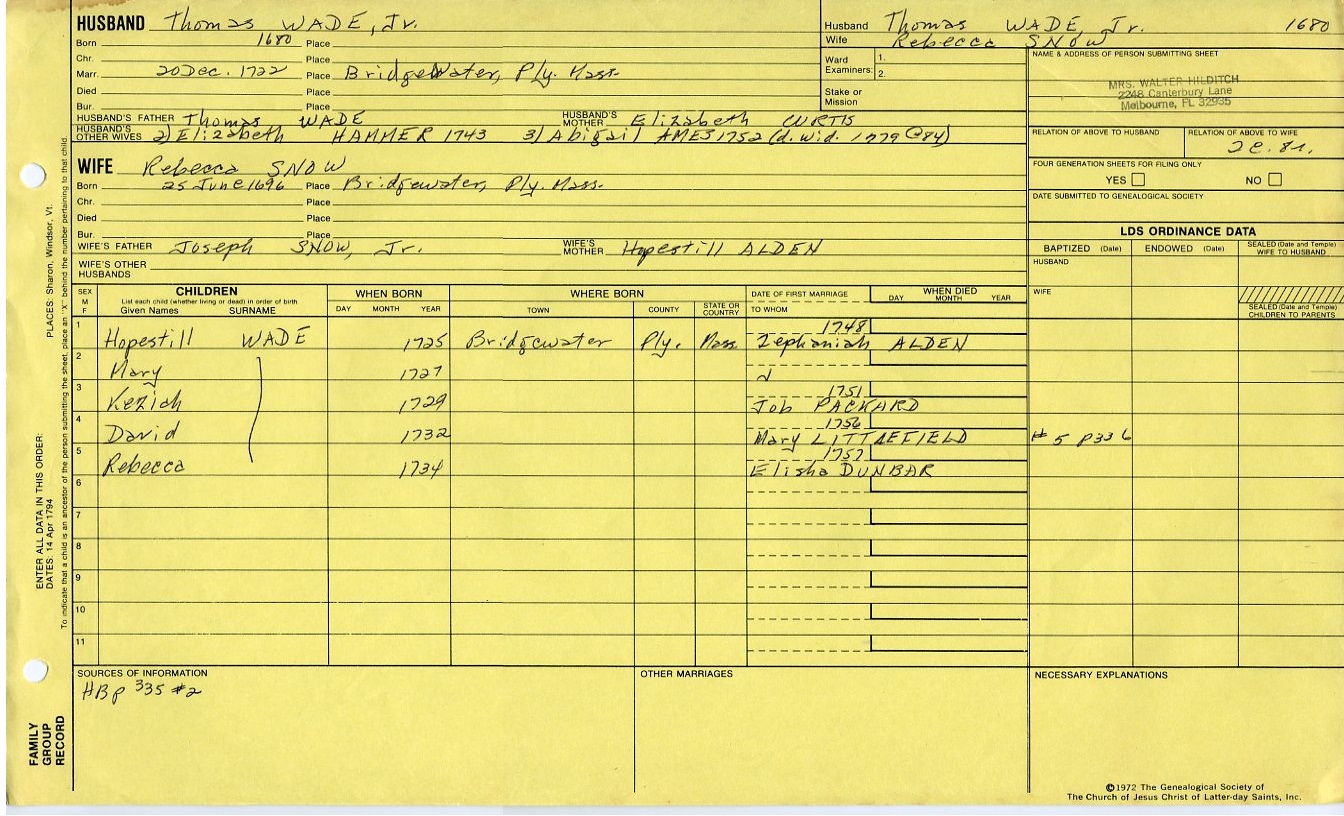 HUSBAND Thomas WADE, Jr.
Born 1680 Place
Chr. Place
Marr. 20 Dec. 1722 Place Bridgewater, Ply. Mass.
Died Place
Bur. Place
HUSBAND'S FATHER Thomas WADE HUSBAND'S MOTHER Elizabeth CURTIS
HUSBAND'S OTHER WIVES 2) Elizabeth HAMMER 1743 3) Abigail AMES 1752 (d. wid. 1779 @84)
WIFE Rebecca SNOW
Born 25 June 1696 Place Bridgewater, Ply. Mass.
Chr. Place
Died Place
Bur. Place
WIFE'S FATHER Joseph SNOW, Jr. WIFE'S MOTHER Hopestill ALDEN
WIFE'S OTHER HUSBANDS
Husband Thomas WADE, Jr. 1680
Wife Rebecca SNOW
Ward Examiners: 1.
2.
Stake or Mission
NAME & ADDRESS OF PERSON SUBMITTING SHEET
MRS. WALTER HILDITCH
2248 Canterbury Lane
Melbourne, FL 32935
RELATION OF ABOVE TO HUSBAND RELATION OF ABOVE TO WIFE
FOUR GENERATION SHEETS FOR FILING ONLY
YES NO
DATE SUBMITTED TO GENEALOGICAL SOCIETY
LDS ORDINANCE DATA
BAPTIZED (Date) ENDOWED (Date) SEALED (Date and Temple) WIFE TO HUSBAND
HUSBAND
WIFE
SEALED (Date and Temple) CHILDREN TO PARENTS
SEX M F CHILDREN WHEN BORN WHERE BORN DATE OF FIRST MARRIAGE WHEN DIED
List each child (whether living or dead) in order of birth
Given Names SURNAME DAY MONTH YEAR TOWN COUNTY STATE OR COUNTRY TO WHOM DAY MONTH YEAR
1 1748
Hopestill WADE 1725 Bridgewater Ply. Mass. Zephaniah ALDEN
2
Mary 1727
3 1751
Keziah 1729 Job PACKARD
4 1756
David 1732 Mary LITTLEFIELD #5 p336
5 1757
Rebecca 1734 Elisha DUNBAR
6
7
8
9
10
11
SOURCES OF INFORMATION OTHER MARRIAGES NECESSARY EXPLANATIONS
HB p 335 #2
©1972 The Genealogical Society of
The Church of Jesus Christ of Latter-day Saints, Inc.
PLACES: Sharon, Windsor, Vt.
To indicate that a child is an ancestor of the person submitting the sheet, place an "X" behind the number pertaining to that child.
ENTER ALL DATA IN THIS ORDER:
DATES: 14 Apr 1794
FAMILY
GROUP
RECORD